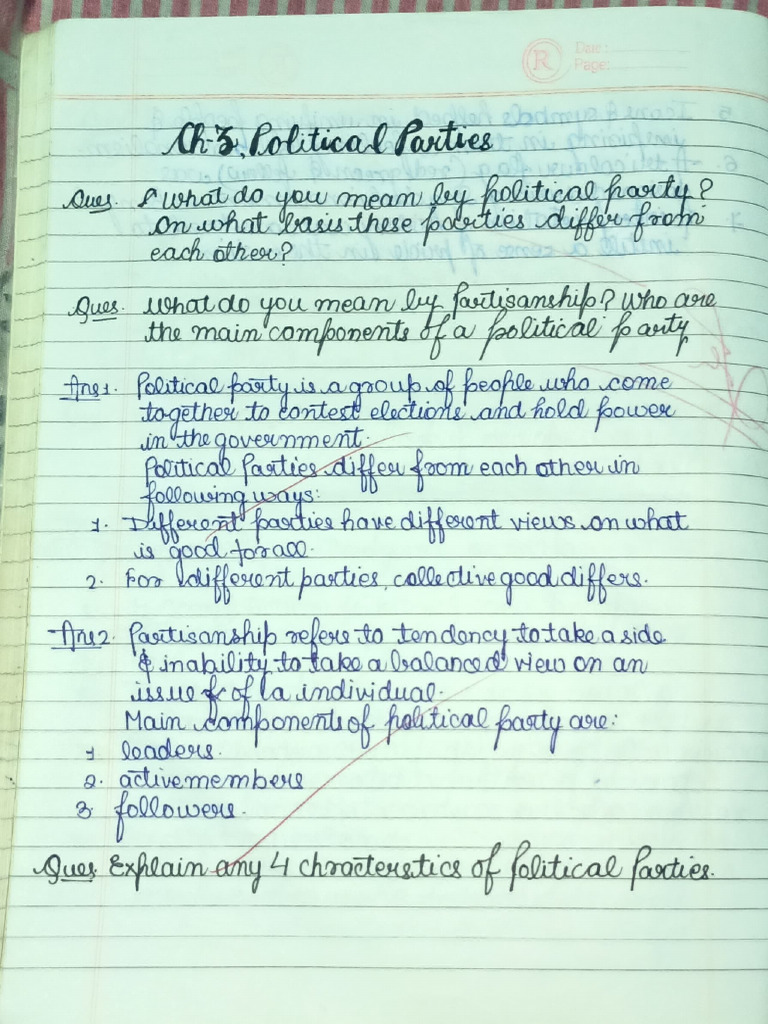 R Date:
Page:
Ch-3, Political Parties
Ques. what do you mean by political party?
On what basis these parties differ from
each other?
Ques. what do you mean by partisanship? Who are
the main components of a political party
Ans1. Political party is a group of people who come
together to contest elections and hold power
in the government.
Political Parties differ from each other in
following ways:
1. Different parties have different views on what
is good for all.
2. For different parties, collective good differs.
Ans2. Partisanship refers to tendency to take a side
& inability to take a balanced view on an
issue of a individual.
Main components of political party are:
1. leaders.
2. active members
3 followers.
Ques. Explain any 4 chracterstics of Political Parties.